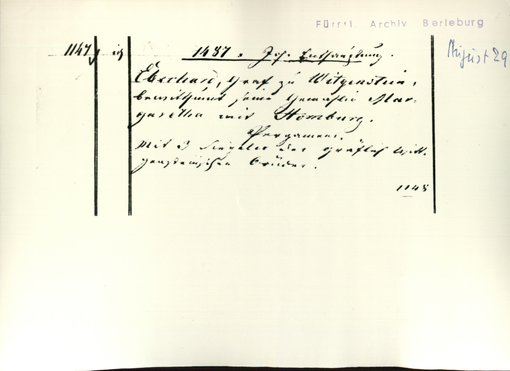 Fürstl. Archiv Berleburg
August 29
1147
1487. Joh. Enthauptung.
Eberhard, Graf zu Witgenstein,
bewitthumt seine Gemahlin Mar-
garetha mit Homburg.
Pergament.
Mit 3 Siegeln der Gräflich Witt-
gensteinischen Brüder.
1148